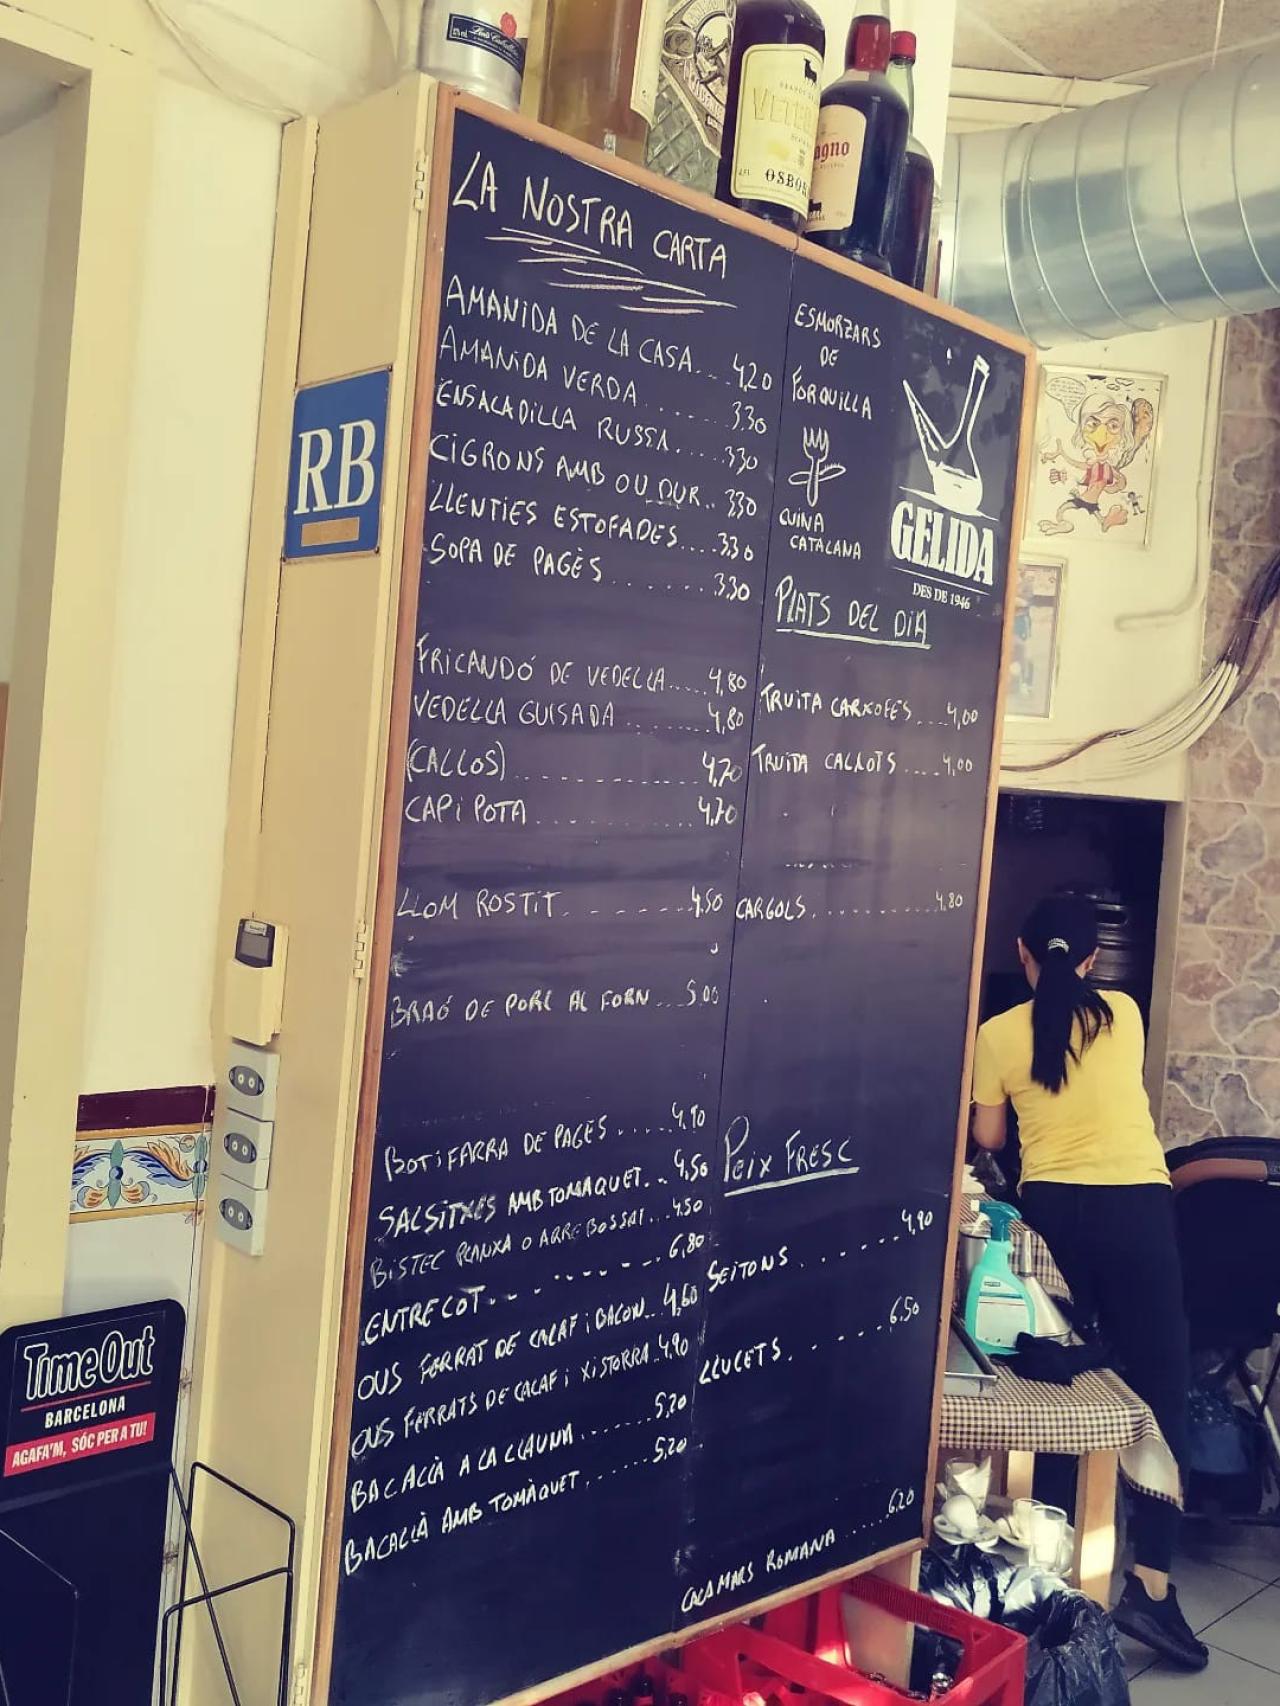 LA NOSTRA CARTA
AMANIDA DE LA CASA... 4,20
AMANIDA VERDA...... 3.30
ENSALADILLA RUSSA.... 330
CIGRONS AMB OU DUR.. 330
LLENTIES ESTOFADES....330
SOPA DE PAGÈS....... 3.30
FRICANDÓ DE VEDELLA.....4,80
VEDELLA GUISADA........ 4,80
(CALLOS)............... 4,70
CAP i POTA............. 4,70
LLOM ROSTIT........ 4.50
BRAÓ DE PORC AL FORN...5.00
BOTIFARRA DE PAGES.....4.90
SALSITXES AMB TOMAQUET...4,50
BISTEC PLANXA O ARREBOSSAT...4.50
ENTRECOT......... 6,80
OUS FERRAT DE CALAF i BACON..4,60
OUS FERRATS DE CALAF i XISTORRA.4.90
BACALLÀ A LA LLAUNA.......5,20
BACALLÀ AMB TOMÀQUET......5,20
ESMORZARS
DE
FORQUILLA
CUINA
CATALANA
GELIDA
DES DE 1946
PLATS DEL DIA
TRUITA CARXOFES...4,00
TRUITA CALÇOTS....4,00
CARGOLS...........4.80
PEIX FRESC
SEITONS......4,90
LLUCETS.....6,50
CALAMARS ROMANA......6,20
RB
VETE
OSBO
agno
Time Out
BARCELONA
AGAFA'M, SÓC PER A TU!